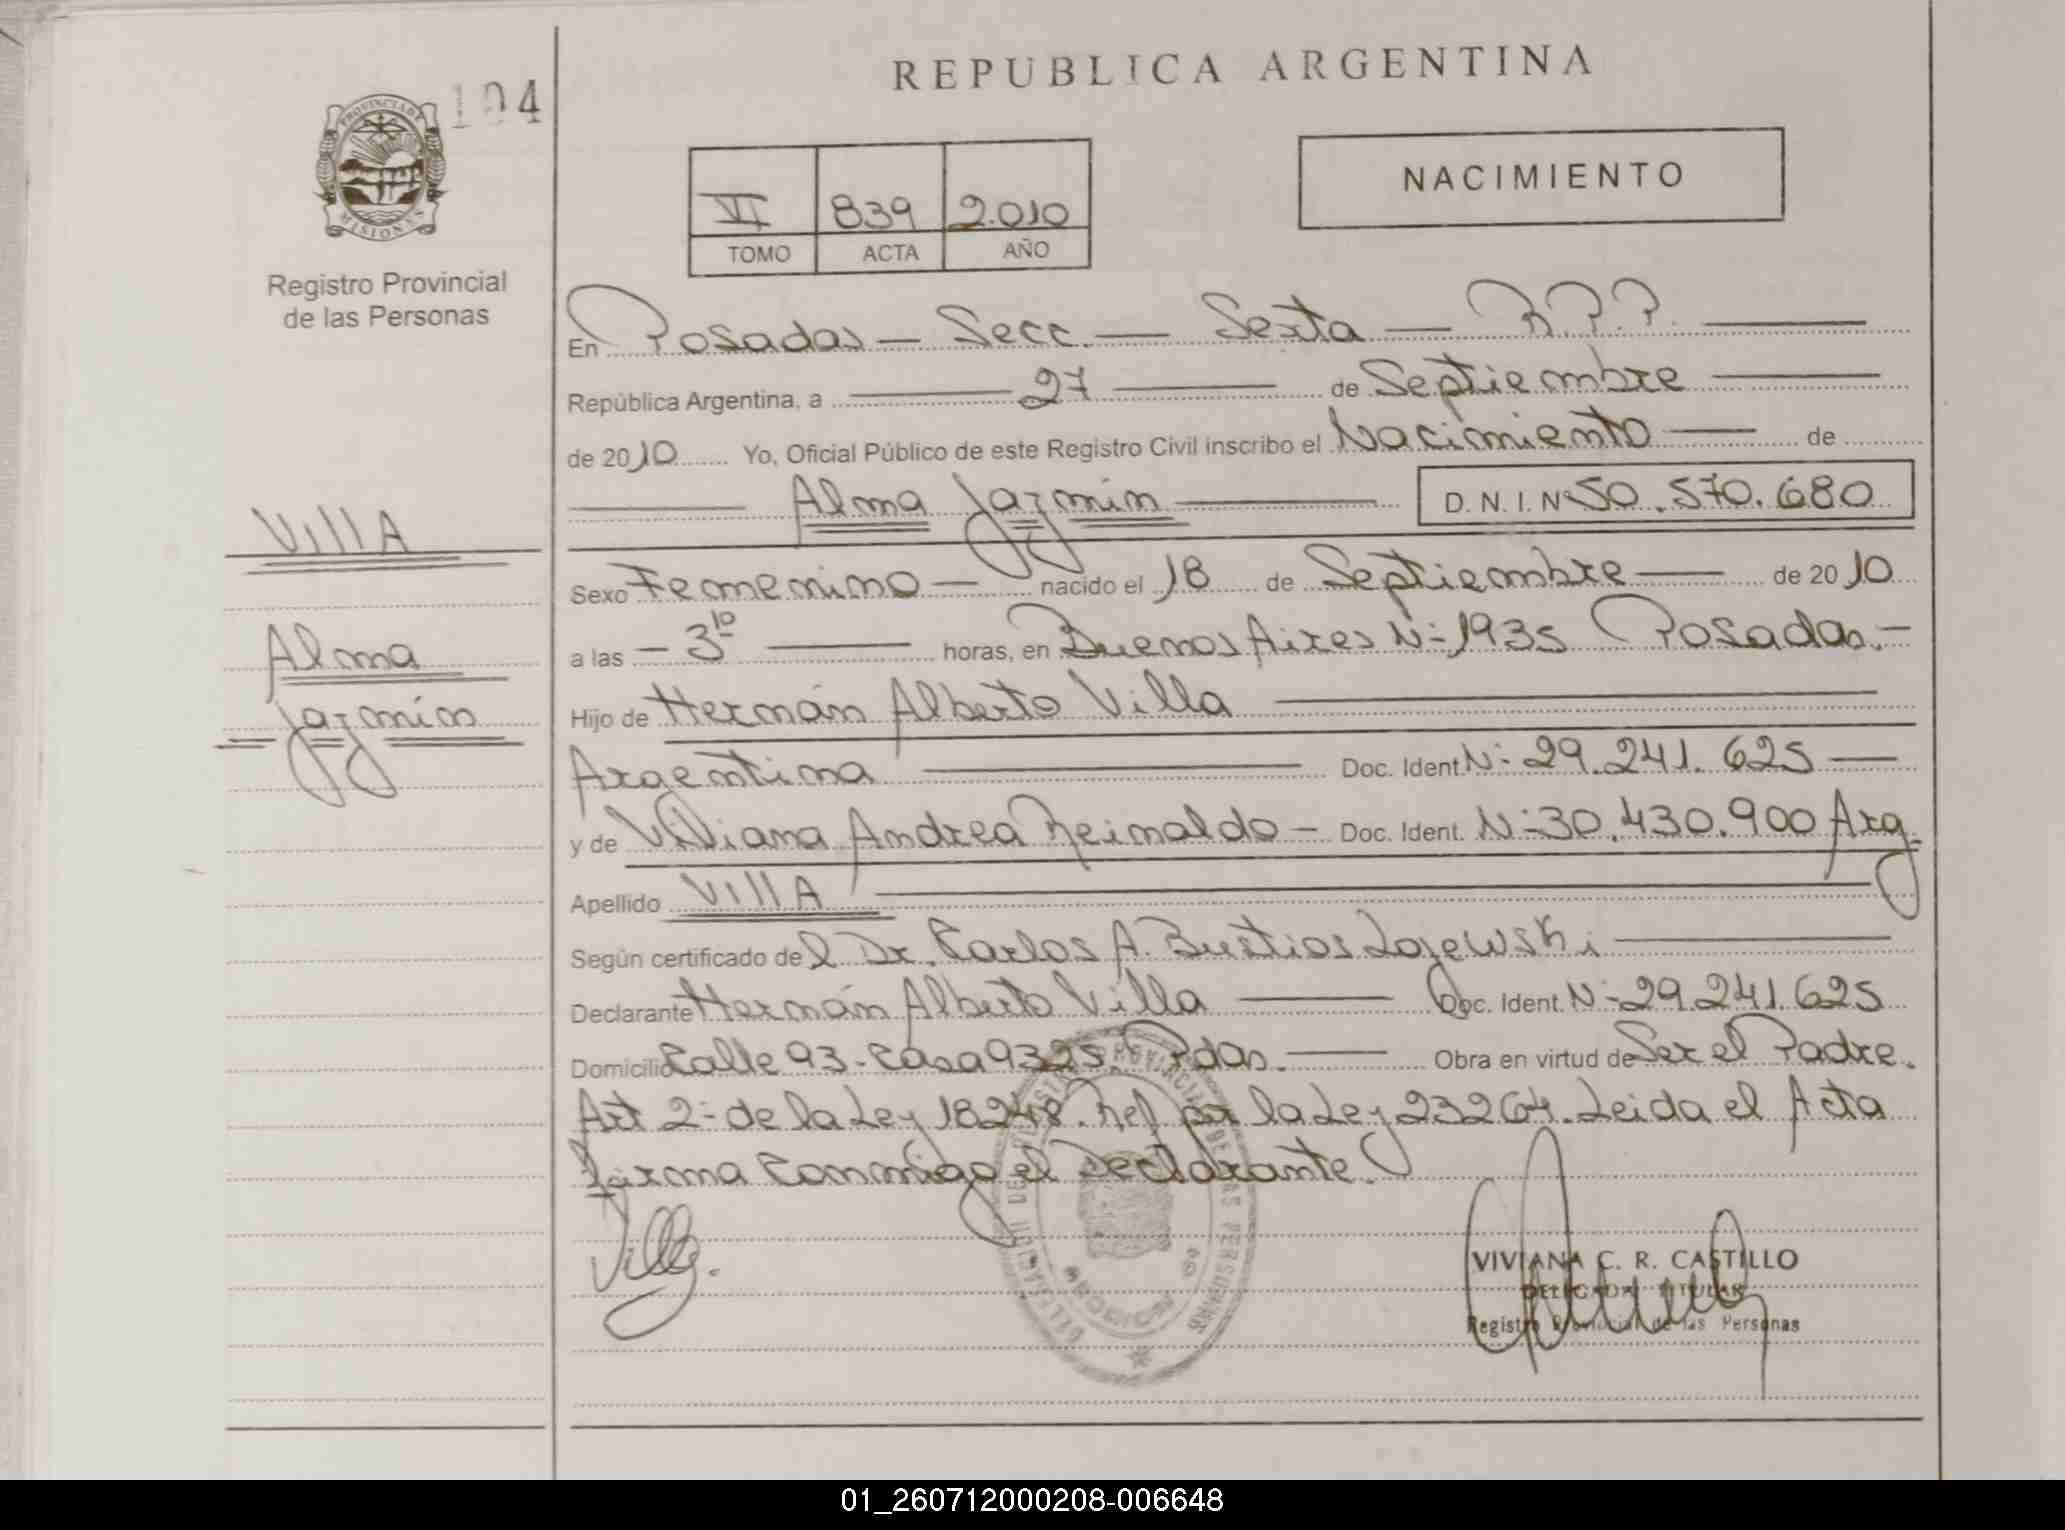 REPUBLICA ARGENTINA
104
PROVINCIA DE
MISIONES
Registro Provincial
de las Personas
VI 839 2.010
TOMO ACTA AÑO
NACIMIENTO
En Posadas — Secc. — Sexta — R.P.P.
República Argentina, a 27 de Septiembre
de 2010 Yo, Oficial Público de este Registro Civil inscribo el Nacimiento de
Alma Jazmín D.N.I. Nº 50.570.680
VillA
Alma
Jazmín
Sexo Femenino — nacido el 18 de Septiembre — de 2010
a las — 3 10 — horas, en Buenos Aires Nº 1935 Posadas. —
Hijo de Hernán Alberto Villa
Argentina — Doc. Ident. Nº 29.241.625 —
y de Viviana Andrea Reinaldo — Doc. Ident. Nº 30.430.900 Arg.
Apellido VillA
Según certificado del Dr. Carlos A. Bustios Lojewski
Declarante Hernán Alberto Villa — Doc. Ident. Nº 29.241.625
Domicilio Calle 93 - Casa 9325, Pdas. — Obra en virtud de Ser el Padre.
Art 2º de la Ley 18248. Ref por la Ley 23264. Leida el Acta
firma Conmigo el Declarante.
Villa.
VIVIANA C. R. CASTILLO
DELEGADA TITULAR
Registro Provincial de las Personas
01_260712000208-006648